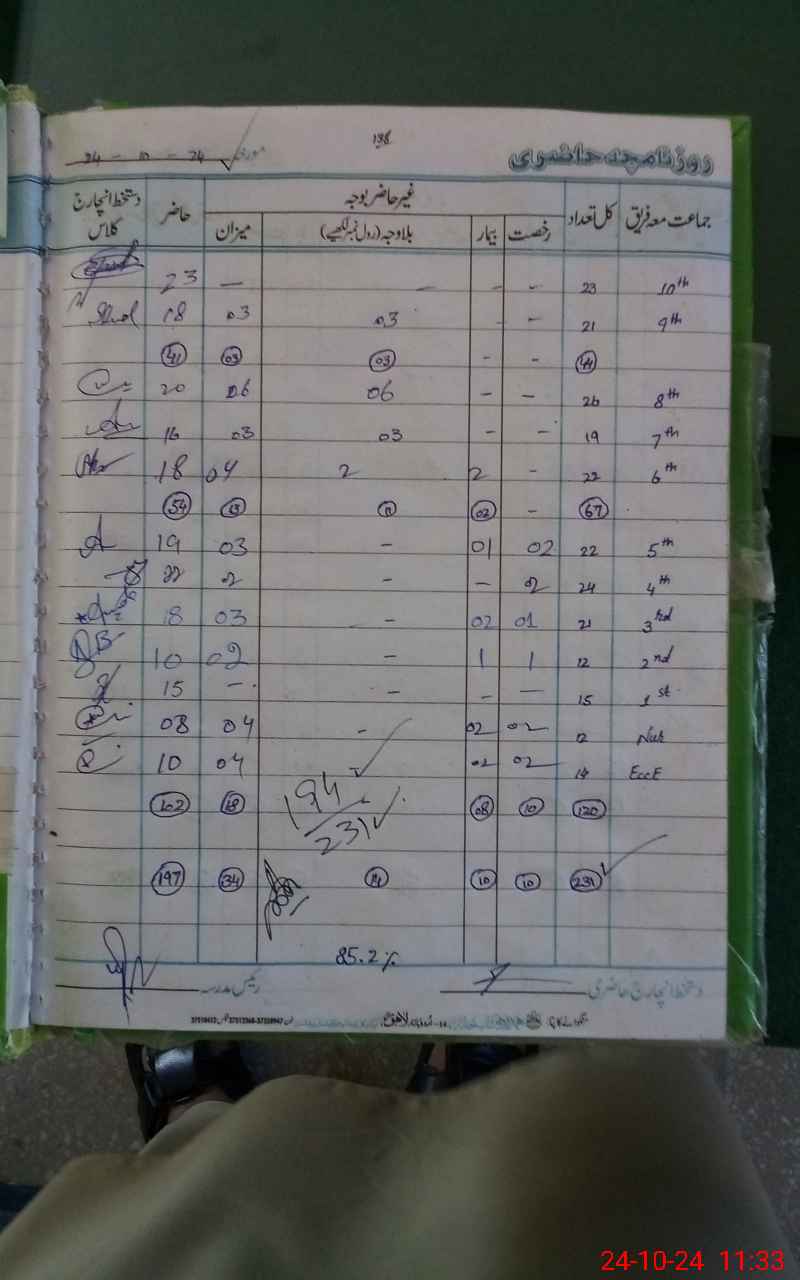 138
روزنامچہ حاضری مورخہ 24 - 10 - 24
جماعت معہ فریق کل تعداد غیر حاضر بوجہ حاضر دستخط انچارج کلاس
رخصت بیمار بلا وجہ (رول نمبر لکھیے) میزان
10th 23 - - - - 23
9th 21 - 03 03 18
44 - - 03 03 41
8th 26 - - 06 06 20
7th 19 - - 03 03 16
6th 22 - 2 2 04 18
67 - 02 11 13 54
5th 22 02 01 - 03 19
4th 24 02 - - 02 22
3rd 21 01 02 - 03 18
2nd 12 1 1 - 02 10
1st 15 - - - - 15
Nur 12 02 02 - 04 08
EccE 14 02 02 - 04 10
120 10 08 18 102
194
231
231 10 10 14 34 197
85.2 %
دستخط انچارج حاضری رئیس مدرسہ
24-10-24 11:33